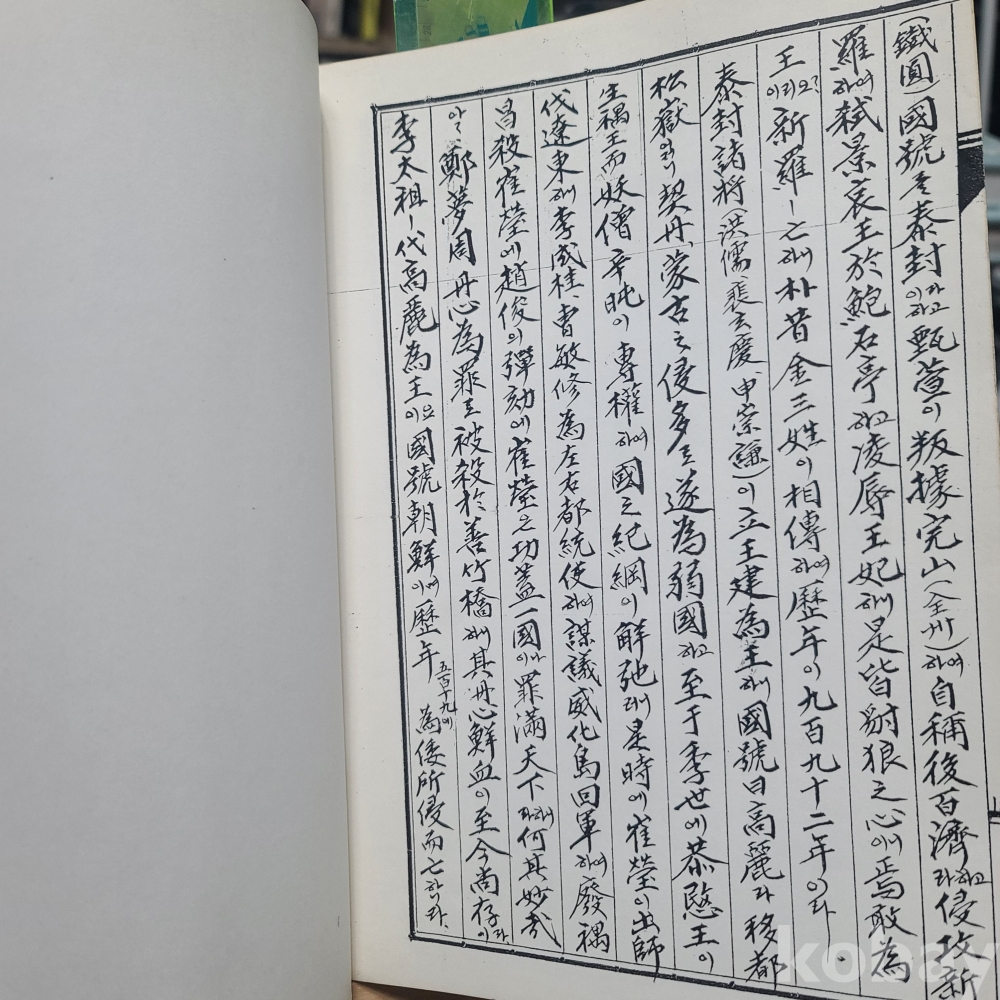 (鐵圓) 國號를 泰封이라하고 甄萱이 叛據完山(全州)하여 自稱後百濟라하고 侵攻新
羅하여 弑景哀王於鮑石亭하고 凌辱王妃하니 是皆豺狼之心이어 焉敢為
王이리요? 新羅ㅣ 亡하니 朴昔金三姓이 相傳하여 歷年이 九百九十二年이라
泰封諸將(洪儒、裴玄慶、申崇謙)이 立王建為王하니 國號曰高麗라 移都
松嶽이러니 契丹、蒙古之侵多로 遂為弱國하고 至于季世에 恭愍王이
生禑王而妖僧辛旽이 專權하여 國之紀綱이 解弛러니 是時에 崔瑩이 出師
伐遼東하니 李成桂、曺敏修為左右都統使하여 謀議威化島回軍하여 廢禑
昌殺崔瑩에 趙俊의 彈劾에 崔瑩은 功蓋一國이나 罪滿天下라하니 何其妙哉
아、鄭夢周 丹心為罪로 被殺於善竹橋하니 其丹心鮮血이 至今尚存이라
李太祖ㅣ 代高麗為王이요 國號朝鮮이며 歷年 五百十九에 為倭所侵而亡하니라
kobay